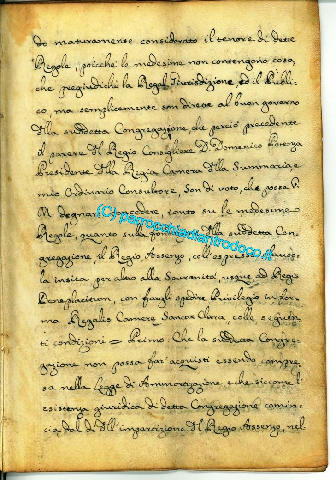 do maturamente considerato il tenore di dette
Regole, poicchè le medesime non contengono cosa,
che pregiudichi la Regal Giurisdizione ed il Publi-
co, ma semplicemente son dirette al buon governo
della suddetta Congregazione, che perciò precedente
il parere del Regio Consigliere D. Domenico Potenza
Presidente della Regia Camera della Summaria, e
mio Ordinario Consultore, son di voto, che possa V.
M. degnarsi concedere, tanto su le medesime
Regole, quanto sulla fondazione della suddetta Con-
gregazione, il Regio Assenso, coll'espressa clausola
la insita per altro alla Sovranità, usque ad Regis
Beneplacitum, con fargli spedire Privilegio in for-
ma Regalis Camere Sanctae Clarae, colle seguen-
ti condizioni = Primo: Che la suddetta Congre-
gazione non possa far acquisti essendo compre-
sa nella Legge di Ammortizazione, e che siccome l'
esistenza giuridica di detta Congregazione comin-
cia dal dì dell'impartizione del Regio Assenso, nel
(C) parrocchiadiantrodoco.it